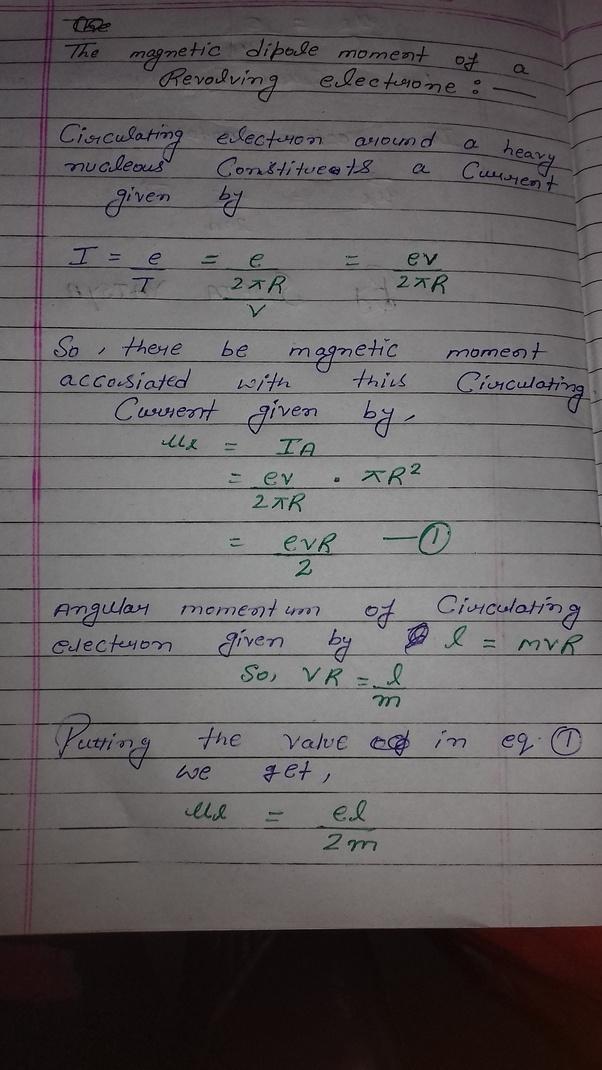 The
The magnetic dipole moment of a
Revolving electrone : —
Circulating electron around a heavy
nucleous Constitueats a Current
given by
I = e/T = e/(2πR/v) = ev/2πR
So, there be magnetic moment
accosiated with this Circulating
Current given by,
μl = IA
= ev/2πR . πR²
= evR/2 —①
Angular momentum of Circulating
electron given by l = mvR
So, VR = l/m
Putting the value in eq. ①
we get,
μl = el/2m